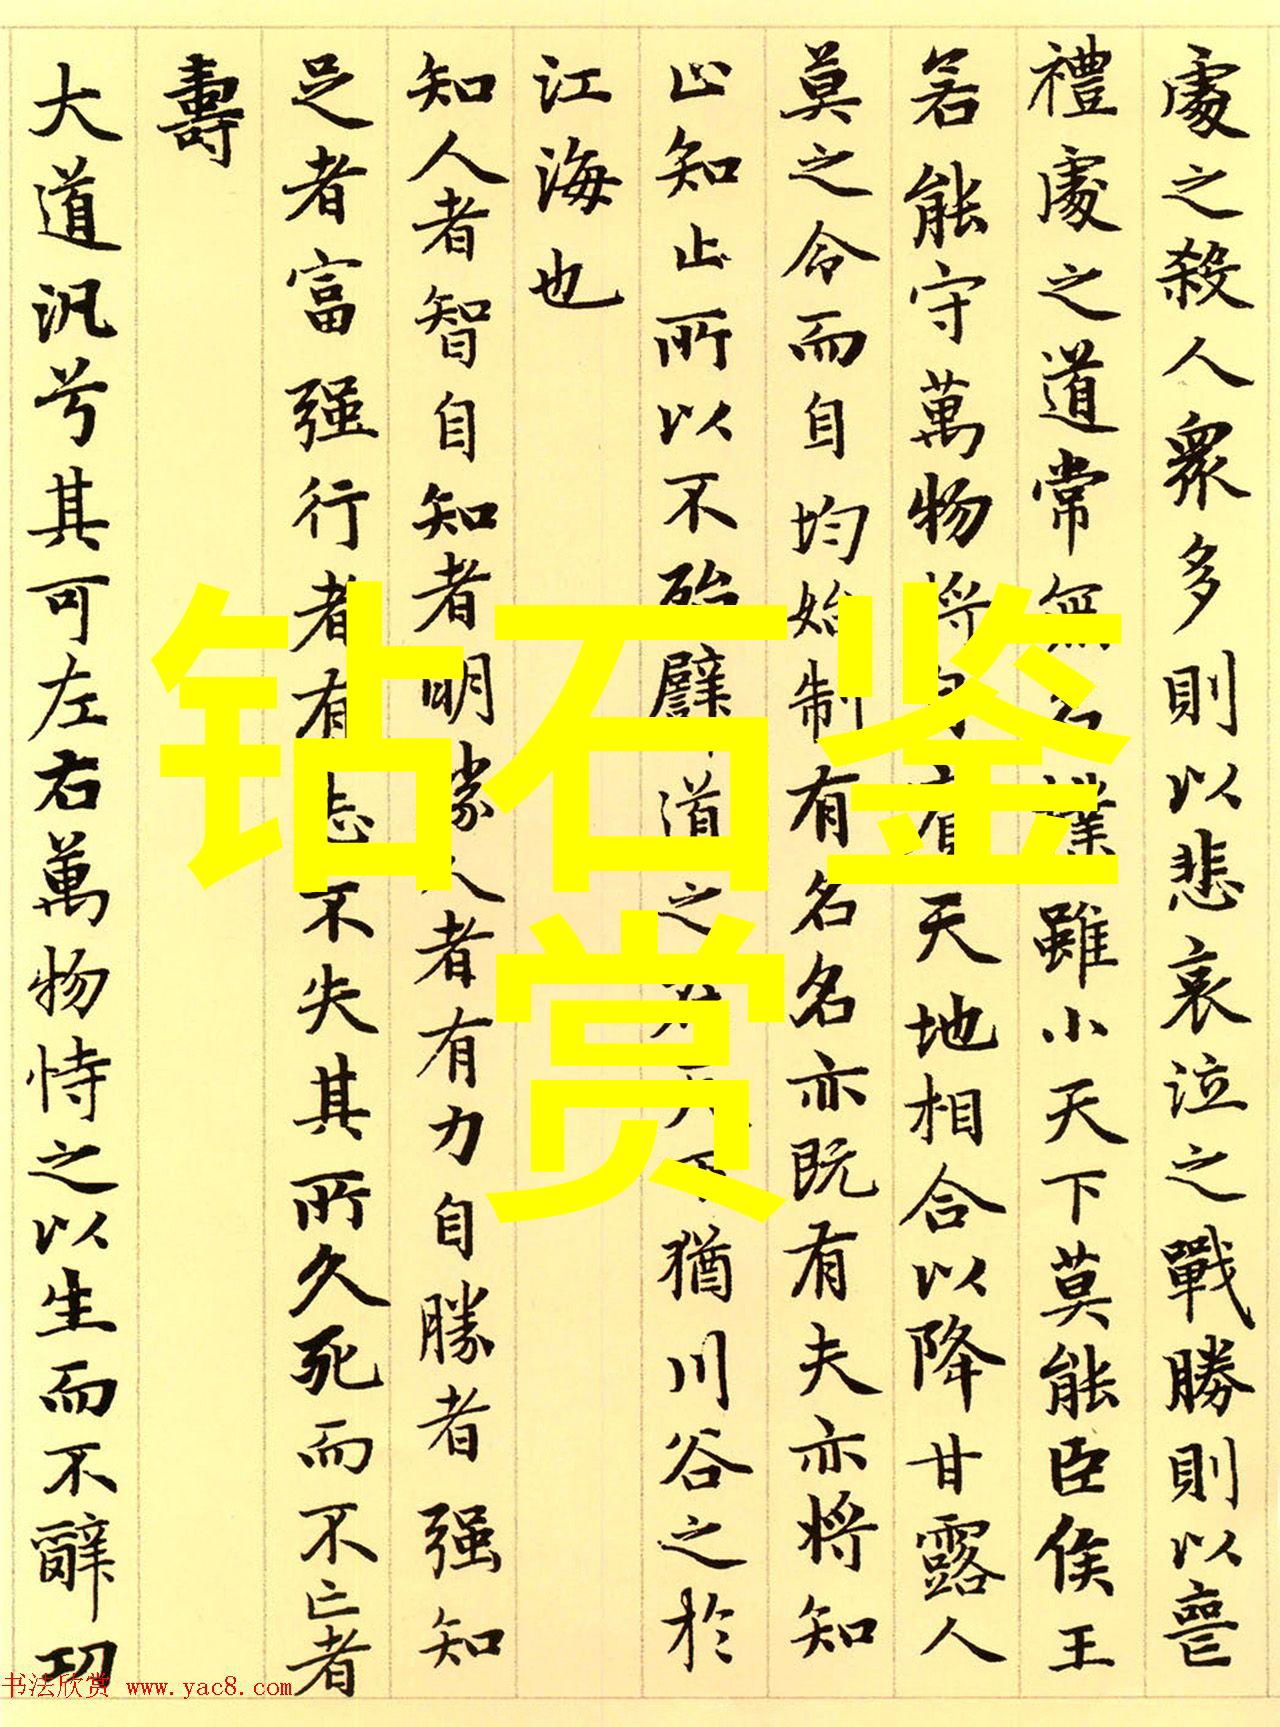 處之殺人衆多則以悲哀泣之戰勝則以喪
禮處之道常無名樸雖小天下莫能臣侯王
若能守萬物將自賓天地相合以降甘露人
莫之令而自均始制有名名亦既有夫亦將知
止知止所以不殆譬道之在天下猶川谷之於
江海也
知人者智自知者明勝人者有力自勝者强知
足者富强行者有志不失其所久死而不亡者
壽
大道汎兮其可左右萬物恃之以生而不辭功
钻石鉴
赏
书法欣赏 www.yac8.com